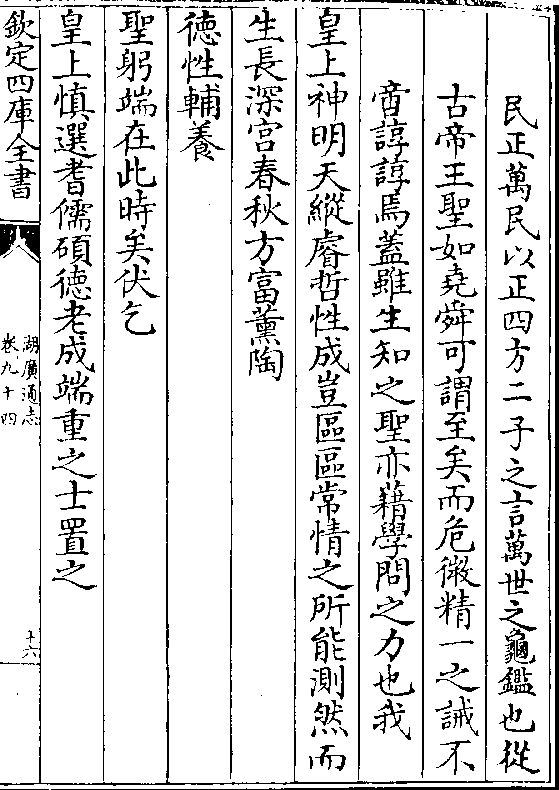 民正萬民以正四方二子之言萬世之龜鑑也從
古帝王聖如堯舜可謂至矣而危微精一之誡不
啻諄諄焉蓋雖生知之聖亦藉學問之力也我
皇上神明天縱睿哲性成豈區區常情之所能測然而
生長深宫春秋方富薰陶
徳性輔養
聖躬端在此時矣伏乞
皇上慎選耆儒碩徳老成端重之士置之
欽定四庫全書
湖廣通志
卷九十四
十六